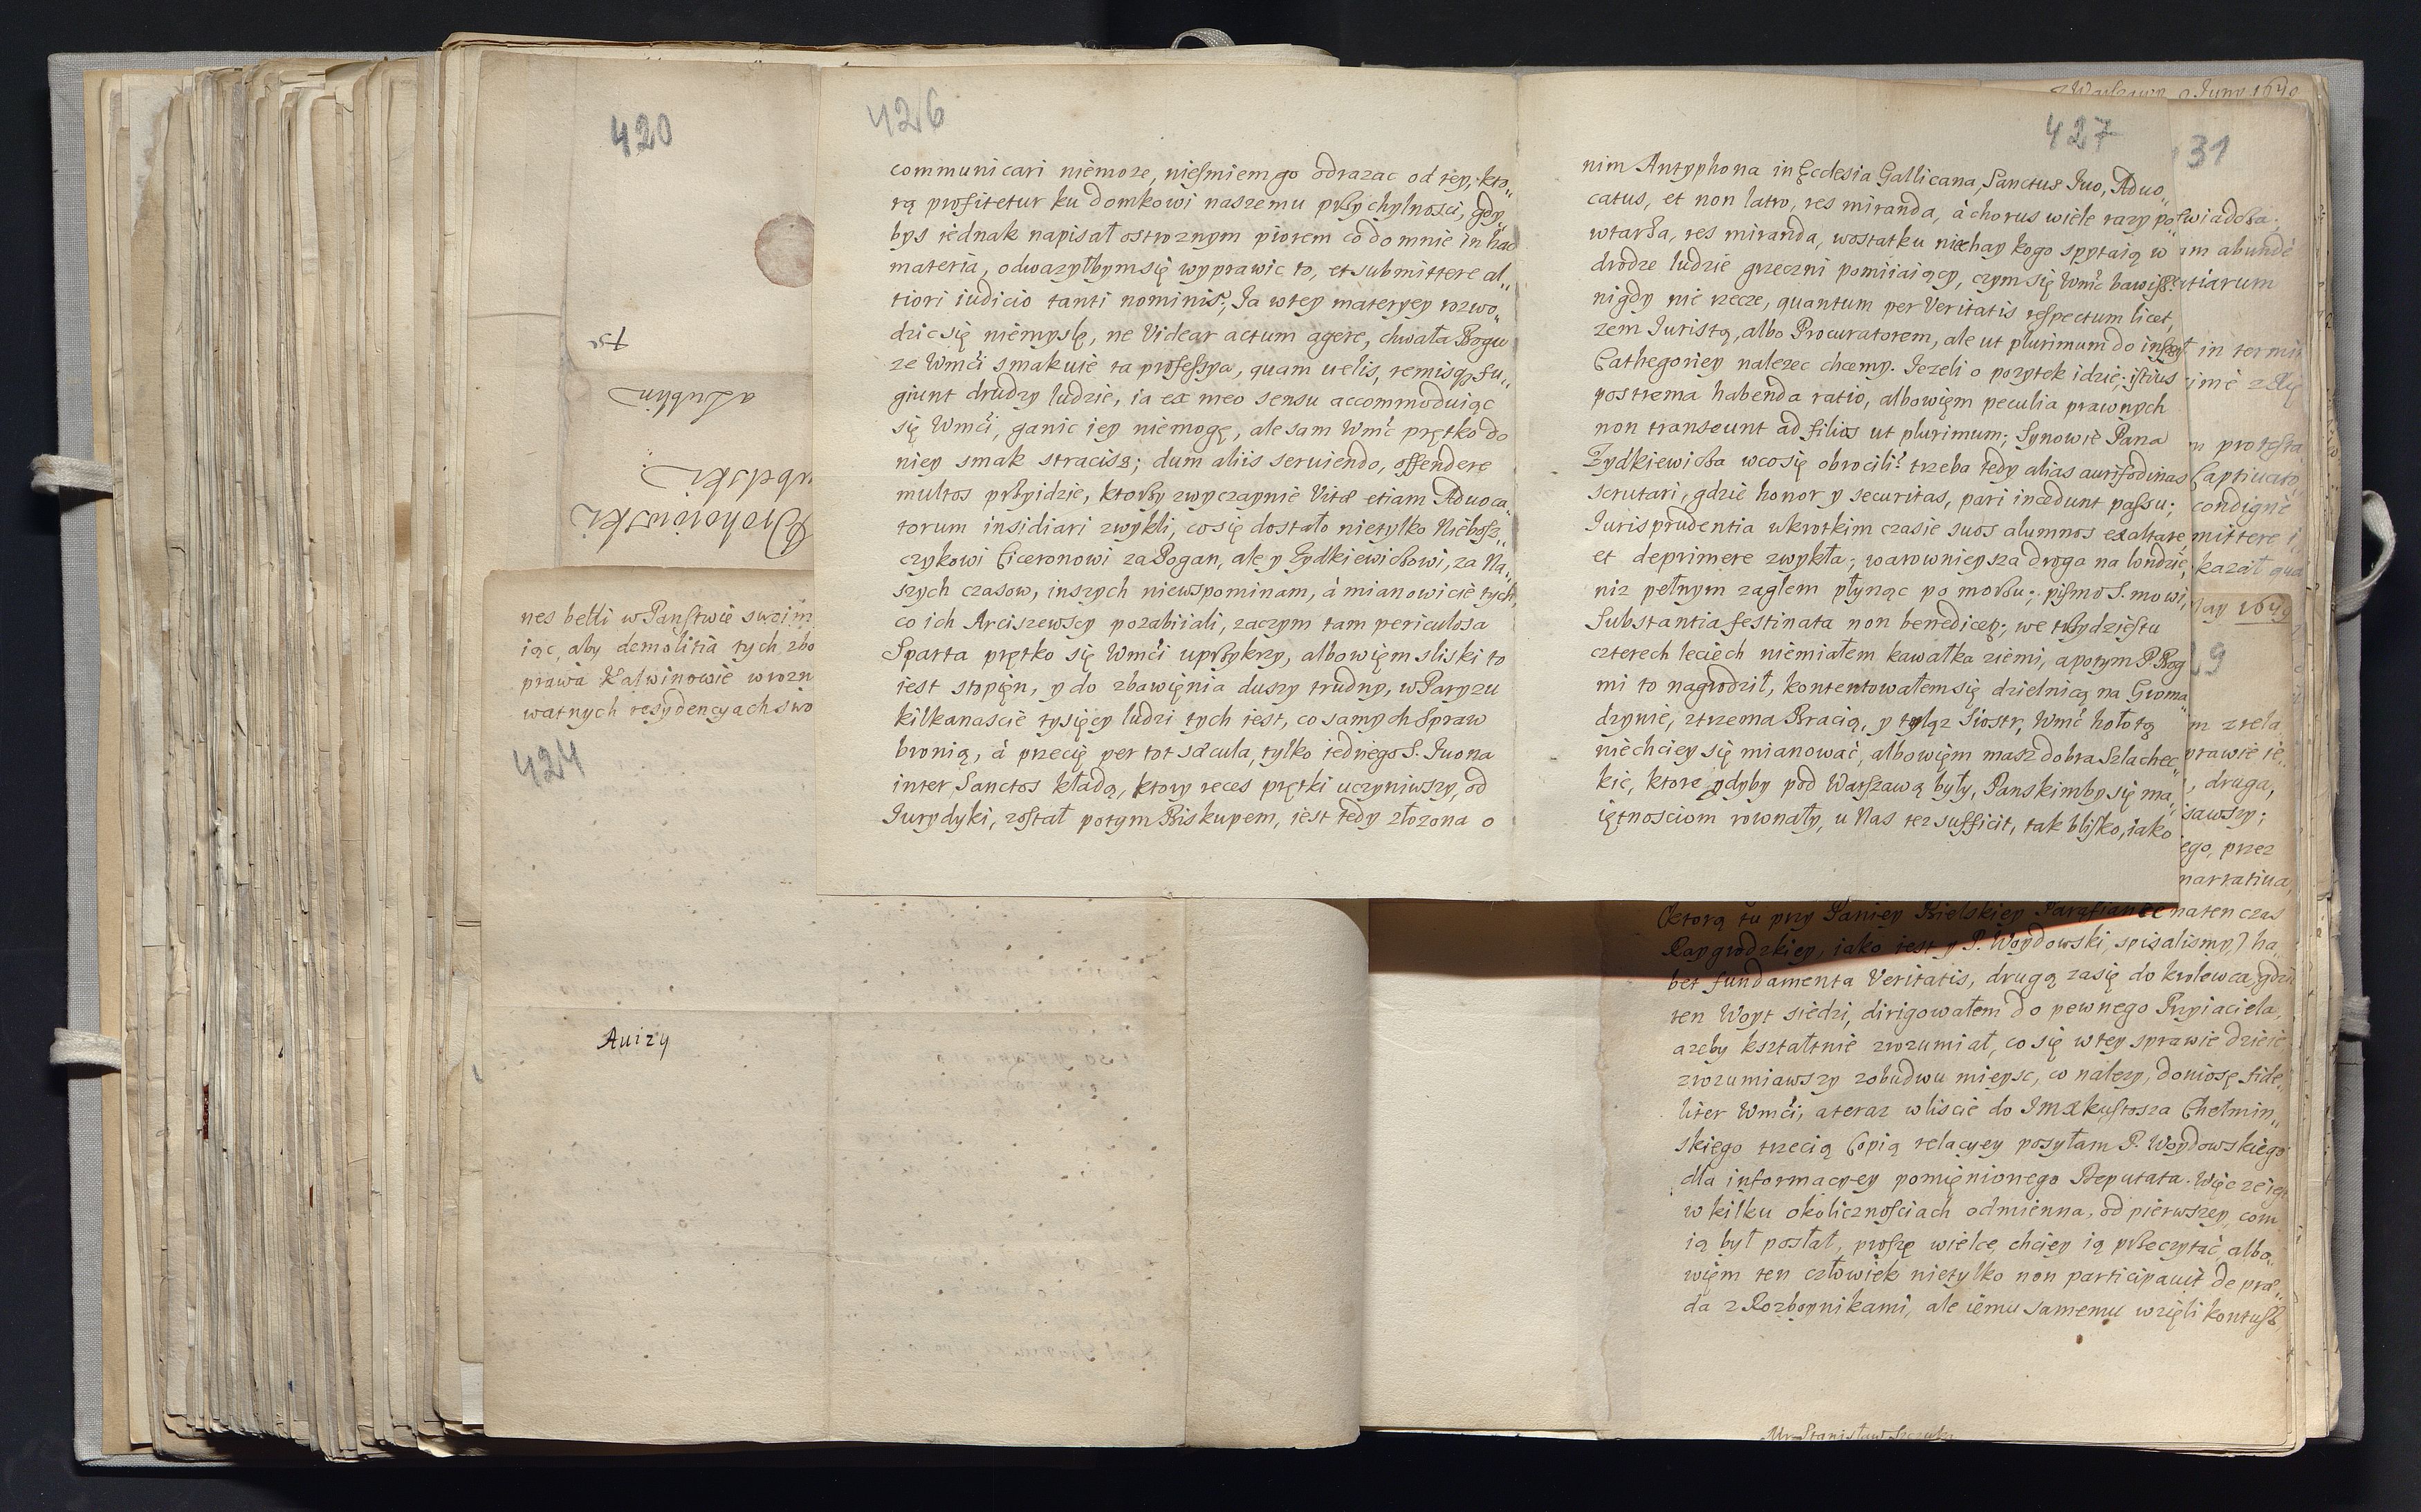 426
communicari niemoze, nieśmiem go odrazac od tey, kto„
rą profitetur ku domkowi naszemu przychylnosci, gdy„
bys iednak napisał ostroznym piorem co do mnie in hac
materia, odwazyłbym się wyprawic to, et submittere al„
tiori iudicio tanti nominis; Ja wtey materyey rozwo„
dzic się niemyslę, ne Videar actum agere, chwała Bogu
ze Wmći smakuie ta professya, quam uelis, remisq; fu„
giunt drudzy ludzie, ia ex meo sensu accommoduiąc
się Wmći, ganic iey niemogę, ale sam Wmć prętko do
niey smak stracisz; dum aliis seruiendo, offendere
multos przyidzie, ktorzy zwyczaynie Vitæ etiam Aduoca„
torum insidiari zwykli, co się dostało nietylko Niebosz„
czykowi Ciceronowi za Pogan, ale y Zydkiewiczowi, za Na„
szych czasow, inszych niewspominam, à mianowicie tych,
co ich Arciszewscy pozabiiali, zaczym tam periculosa
Sparta prętko się Wmći uprzykrzy, albowięm sliski to
iest stopięn, y do zbawięnia duszy trudny, w Paryzu
kilkanascie tysięcy ludzi tych iest, co samych Spraw
bronią, à przecię per tot sæcula, tylko iednego S. Iuona
inter Sanctos kładą, ktory reces prętki uczyniwszy, od
Iurydyki, został potym Biskupem, iest tedy złozona o
427
nim Antyphona in Ecclesia Gallicana, Sanctus Iuo, Aduo„
catus, et non latro, res miranda, à chorus wiele razy po„
wtarza, res miranda, wostatku niechay kogo spytaią w
drodze ludzie grzeczni pomiiaiący, czym się Wmć bawisz?
nigdy nie rzecze, quantum per Veritatis respectum licet,
zem Iuristą, albo Procuratorem, ale ut plurimum do inszey
Cathegoriey nalezec chcemy. Jezeli o pozytek idzie; istius
postrema habenda ratio, albowięm peculia prawnych
non transeunt ad filios ut plurimum; Synowie Pana
Zydkiewicza wco się obrocili? trzeba tedy alias aurifodinas
scrutari, gdzie honor y securitas, pari incedunt passu;
Iurisprudentia wkrotkim czasie suos alumnos exaltare
et deprimere zwykła; warownieysza droga na londzie,
niz pełnym zaglem płynąc po morzu; pismo S. mowi,
Substantia festinata non benedicet; we trzydziestu
czterech leciech niemiałem kawałka ziemi, a potym P. Bog
mi to nagrodził, kontentowałem się dzielnicą na Groma„
dzynie, z trzema Bracią, y tyląz Siostr, Wmć hołotą
niechciey się mianować, albowięm masz dobra Szlachec„
kie, ktore gdyby pod Warszawą były, Panskimby się ma„
iętnosciom rownały, u Nas tez sufficit, tak blisko, iako
420
a Lublin
Drohoiowski
nes belli w Panstwie swoim
iąc, aby demolitia tych zbo
prawa Kalwinowie wrozn
watnych resydencyach swo
424
Auizy
31
(ktorą tu przy Paniey Bielskiey Parafiance naten czas
Raygrodzkiey, iako iest y P. Woydowski, spisalismy) ha„
bet fundamenta Veritatis, drugą zasię do krolewca, gdzie
ten Woyt siedzi, dirigowałem do pewnego Przyiaciela,
azeby kształtnie zrozumiał, co się wtey sprawie dzieie
zrozumiawszy zobudwu mieysc, co nalezy, doniosę fide„
liter Wmći; ateraz wliscie do Imć kustosza Chełmin„
skiego trzecią Copią relacyey posyłam P. Woydowskiego
dla informacyey pomięnionego Deputata. Więc ze iest
w kilku okolicznosciach odmienna, od pierwszey, com
ią był posłał, proszę wielce, chciey ią przeczytać, albo„
więm ten człowiek nietylko non participauit de præ„
da z Rozboynikami, ale iemu samemu wzięli kontusz,